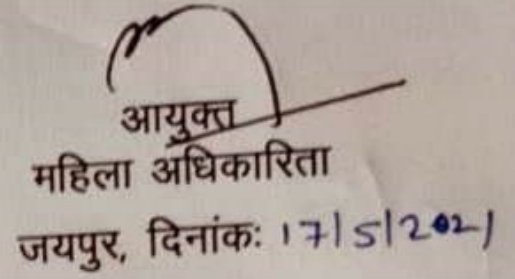 आयुक्त
महिला अधिकारिता
जयपुर, दिनांकः 17/5/2021